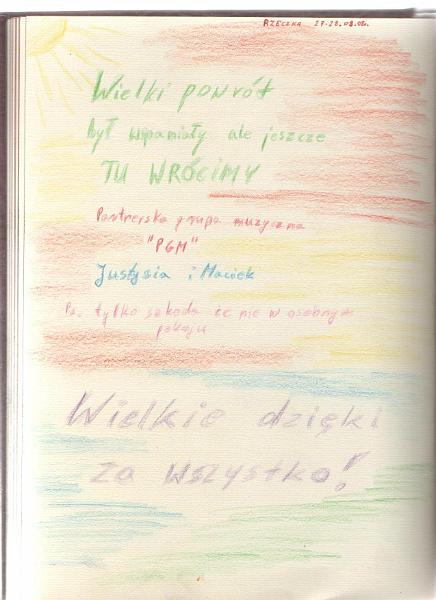 RZECZKA 27-28.08.06.
Wielki powrót
był wspaniały ale jeszcze
TU WRÓCIMY
Partnerska grupa muzyczna
"PGM"
Justysia i Maciek
Ps. tylko szkoda że nie w osobnym
pokoju
Wielkie dzięki
za wszystko!